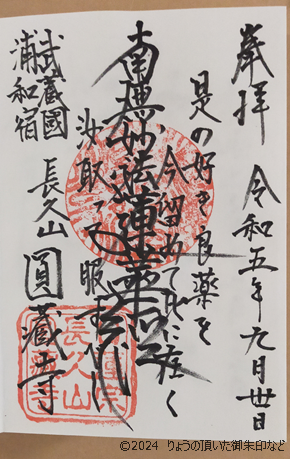 奉拝 令和五年九月卅日
是の好き良薬を
今留めて此に在く
南無妙法蓮華経
汝取って服す可し
武蔵國
浦和宿
長久山 圓蔵寺
長久山
©2024 りょうの頂いた御朱印など